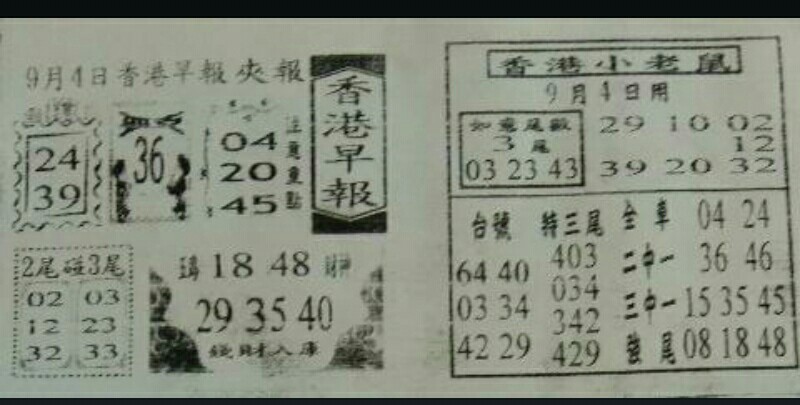 9月4日香港早報夾報
香港早報
24
39
36
04
20
45
注意重點
2尾碰3尾
02 03
12 23
32 33
18 48
29 35 40
錢財入庫
香港小老鼠
9月4日用
如意尾數
3尾
03 23 43
29 10 02
12
39 20 32
台號 特三尾 全車 04 24
64 40 403 二中一 36 46
03 34 034 三中一 15 35 45
342
42 29 429 發尾 08 18 48